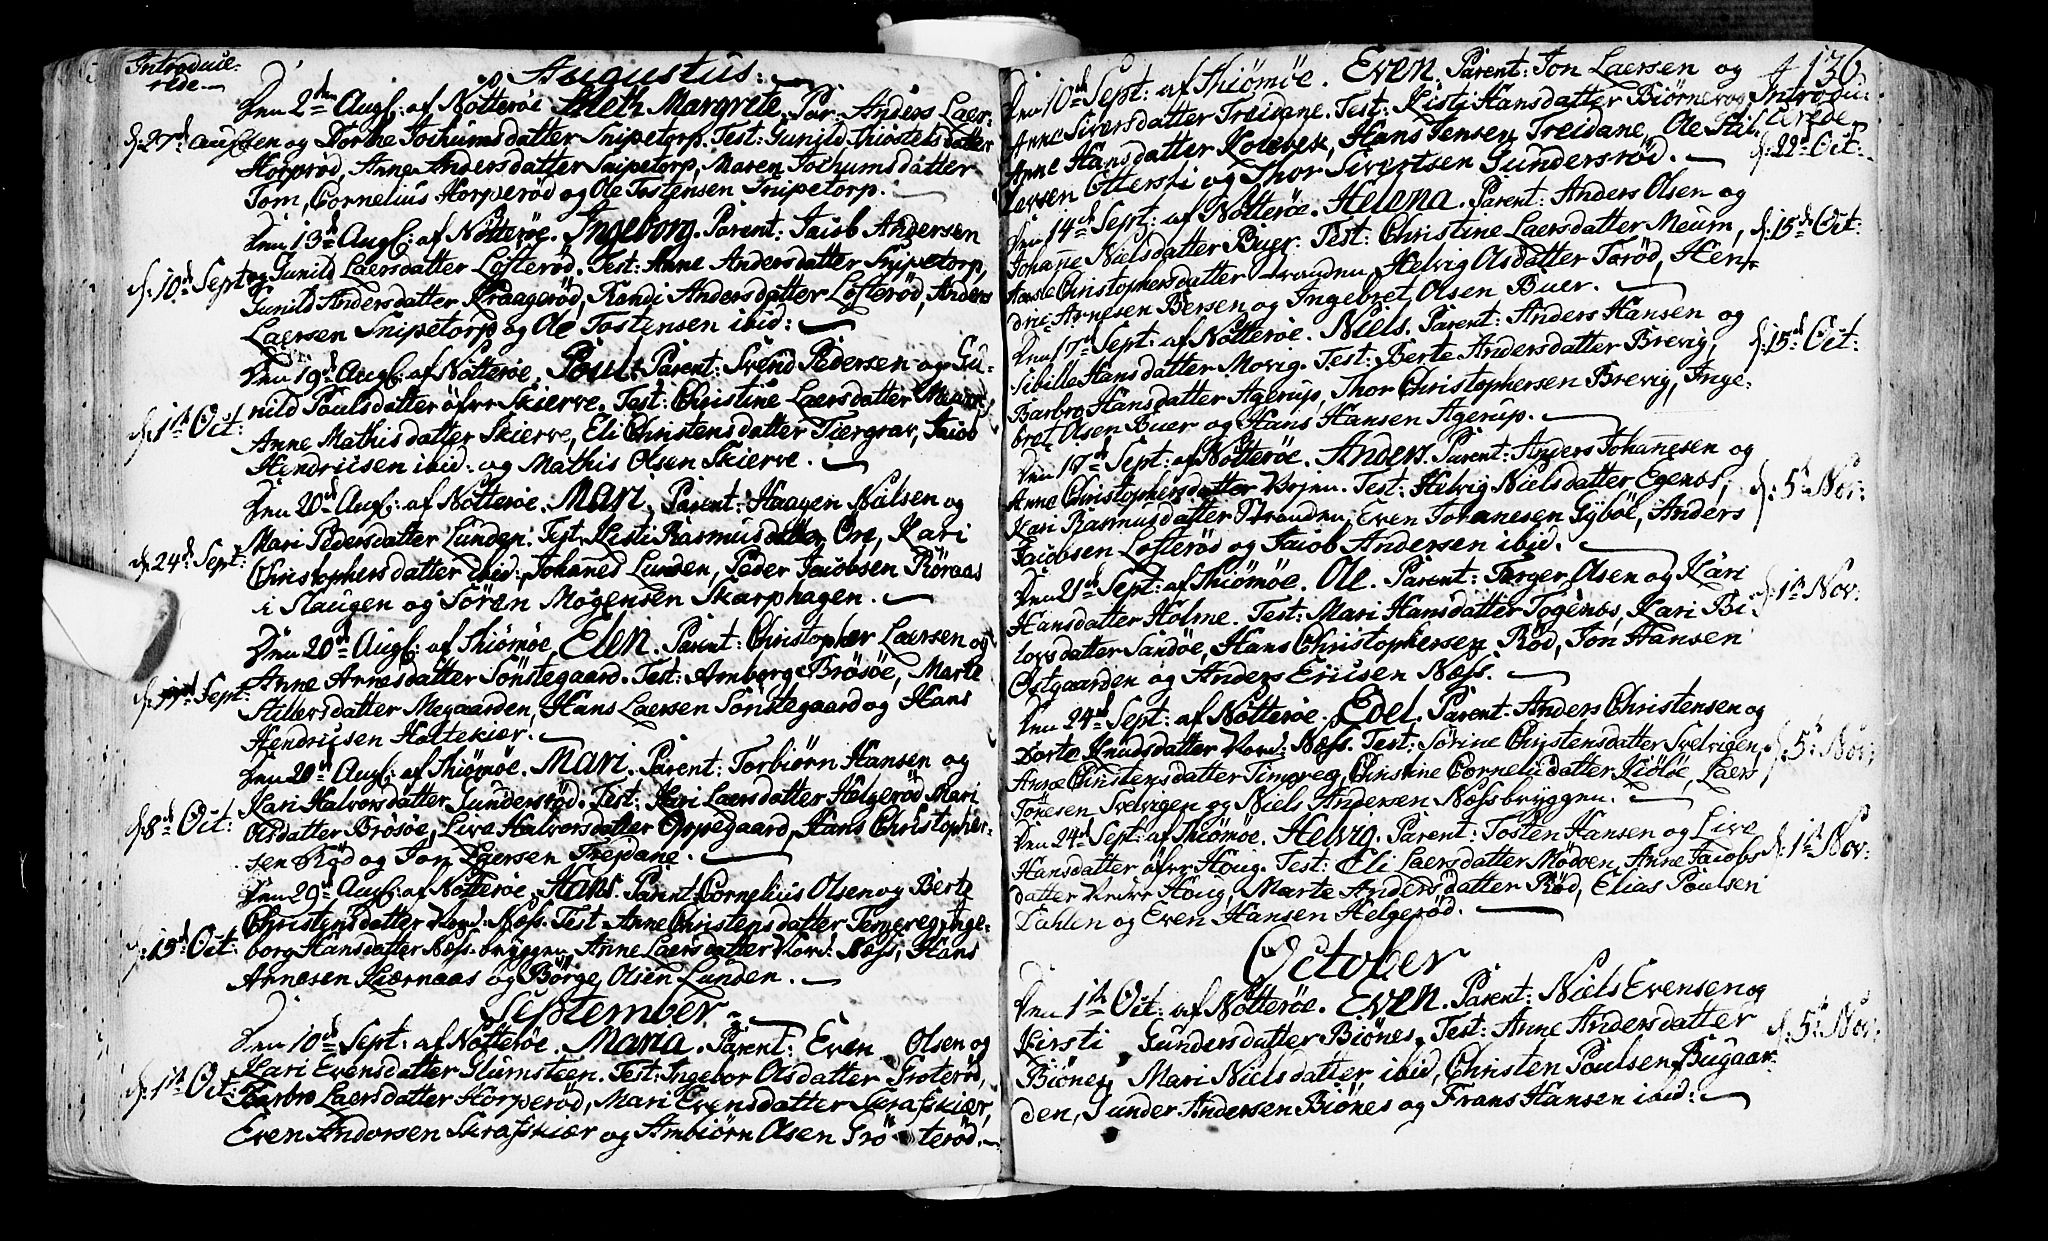 Introduce-
rede
Augustus.
Den 2den Aug: af Nötteröe Aleth Margrete. Par: Anders Laer-
d: 27de Aug: sen og Dorthe Jochumsdatter Snipetorp. Test: Gunild Thiostelsdatter
Horperöd, Anne Andersdatter Snipetorp, Maren Jochumsdatter
Tom, Cornelius Horperöd og Ole Tostensen Snipetorp.
Den 13de Aug: af Nötteröe. Ingeborg. Parent: Jacob Andersen
d: 10de Sept: og Gunild Laersdatter Lofteröd. Test: Anne Andersdatter Snipetorp,
Gunild Andersdatter Kraageröd, Randi Andersdatter Lofteröd, Anders
Laersen Snipetorp og Ole Tostensen ibid:
Den 19de Aug: af Nötteröe. Poul. Parent: Svend Pedersen og Gu-
d: 1te Oct: nild Poulsdatter öfre Skierve. Test: Christine Laersdatter Meum,
Anne Mathisdatter Skierve, Eli Christensdatter Tiergrav, Jacob
Hendricsen ibid: og Mathis Olsen Skierve.
Den 20de Aug: af Nötteröe. Mari. Parent: Haagen Nielsen og
Mari Pedersdatter Lunden. Test: Kisti Rasmusdatter Ore, Kari
d: 24de Sept: Christophersdatter ibid: Johanes Lunden, Peder Jacobsen Röraas
i Slaugen og Sören Mogensen Skarphagen.
Den 20de Aug: af Thiömöe, Elen. Parent: Christopher Laersen og
d: Sept: Anne Arnesdatter Sönstegaard. Test: Amborg Brösöe, Marte
Hellersdatter Megaarden, Hans Laersen Sönstegaard og Hans
Hendricsen Holtekiær.
Den 20de Aug: af Thiömöe. Mari. Parent: Torbiörn Hansen og
Kari Halvorsdatter Gundersröd. Test: Kari Laersdatter Helgeröd, Mari
d: 8de Oct: Olsdatter Brösöe, Live Halvorsdatter Oppegaard, Hans Christopher-
sen Röd og Jon Laersen Treidane.
Den 29de Aug: af Nötteröe. Hans. Parent: Cornelius Olsen og Berte
Christensdatter Nord: Næss. Test: Anne Christensdatter Temereg, Inge-
d: 15de Oct: borg Hansdatter Næss-bryggen, Anne Laersdatter Nord: Næss, Hans
Arnesen Kiærnaas og Börge Olsen Lunden.
September.
Den 10de Sept: af Nötteröe. Maria. Parent: Even Olsen og
Kari Evensdatter Glumsteen. Test: Ingebor Olsdatter Groteröd,
d: 1te Oct: Barbro Laersdatter Horperöd, Mari Evensdatter Skrafskiær,
Even Andersen Skrafskiær og Ambiörn Olsen Gröteröd.
136
Introdu-
cerede
Den 10de Sept: af Thiömöe. Even. Parent: Jon Laersen og
Anne Siversdatter Treidane. Test: Kisti Hansdatter Biörnerog,
Anne Hansdatter Kolebek, Hans Jensen Treidane, Ole Stil-
d: 22de Oct:
lersen Ottersti og Thor Sivertsen Gundersröd.
Den 14de Sept: af Nötteröe. Helena. Parent: Anders Olsen og
Johane Nielsdatter Buer. Test: Christine Laersdatter Meum, d: 15de Oct:
Aasle Christophersdatter Stranden, Helvig Olsdatter Toröd, Hen-
dric Arnesen Bersen og Ingebret Olsen Buer.
Den 17de Sept: af Nötteröe. Niels. Parent: Anders Hansen og
Sibille Hansdatter Movig. Test: Berte Andersdatter Brevig, d: 15de Oct:
Barbro Hansdatter Agerup, Thor Christophersen Brevig, Inge-
bret Olsen Buer og Hans Hansen Agerup.
Den 17de Sept: af Nötteröe. Anders. Parent: Anders Johanesen og
Anne Christophersdatter Bojen. Test: Helvig Nielsdatter Egenæs, d: 5te Nov:
Kari Rasmusdatter Stranden, Even Johanesen Gyböe, Anders
Jacobsen Lofteröd og Jacob Andersen ibid.
Den 21de Sept: af Thiömöe. Ole. Parent: Terger Olsen og Kari
Hansdatter Holme. Test: Mari Hansdatter Togenæs, Kari Bi- d: 1te Nov:
lovsdatter Sandöe, Hans Christophersen Röd, Jon Hansen
Ostgaarden og Anders Ericsen Næss.
Den 24de Sept: af Nötteröe. Edel. Parent: Anders Christensen og
Dorte Knudsdatter Nord: Næss. Test: Sörine Christensdatter Svelvigen, d: 5te Nov:
Anne Christensdatter Timereg, Christine Cornelii datter Kiölöe, Laers
Tönesen Svelvigen og Niels Andersen Næssbryggen.
Den 24de Sept: af Thiömöe. Helvig. Parent: Tosten Hansen og Live
Hansdatter öfre Houg. Test: Eli Laersdatter Mödsen, Anne Jacobs- d: 1te Nov:
datter Nedre Houg, Marte Andersdatter Röd, Elias Poulsen
Dahlen og Even Hansen Helgeröd.
October
Den 1te Oct: af Nötteröe. Even. Parent: Niels Evensen og
Kirsti Gundersdatter Biönes. Test: Anne Andersdatter d: 5te Nov:
Biönes, Mari Nielsdatter ibid, Christen Poulsen Bugaar-
den, Gunder Andersen Biönes og Frans Hansen ibid: